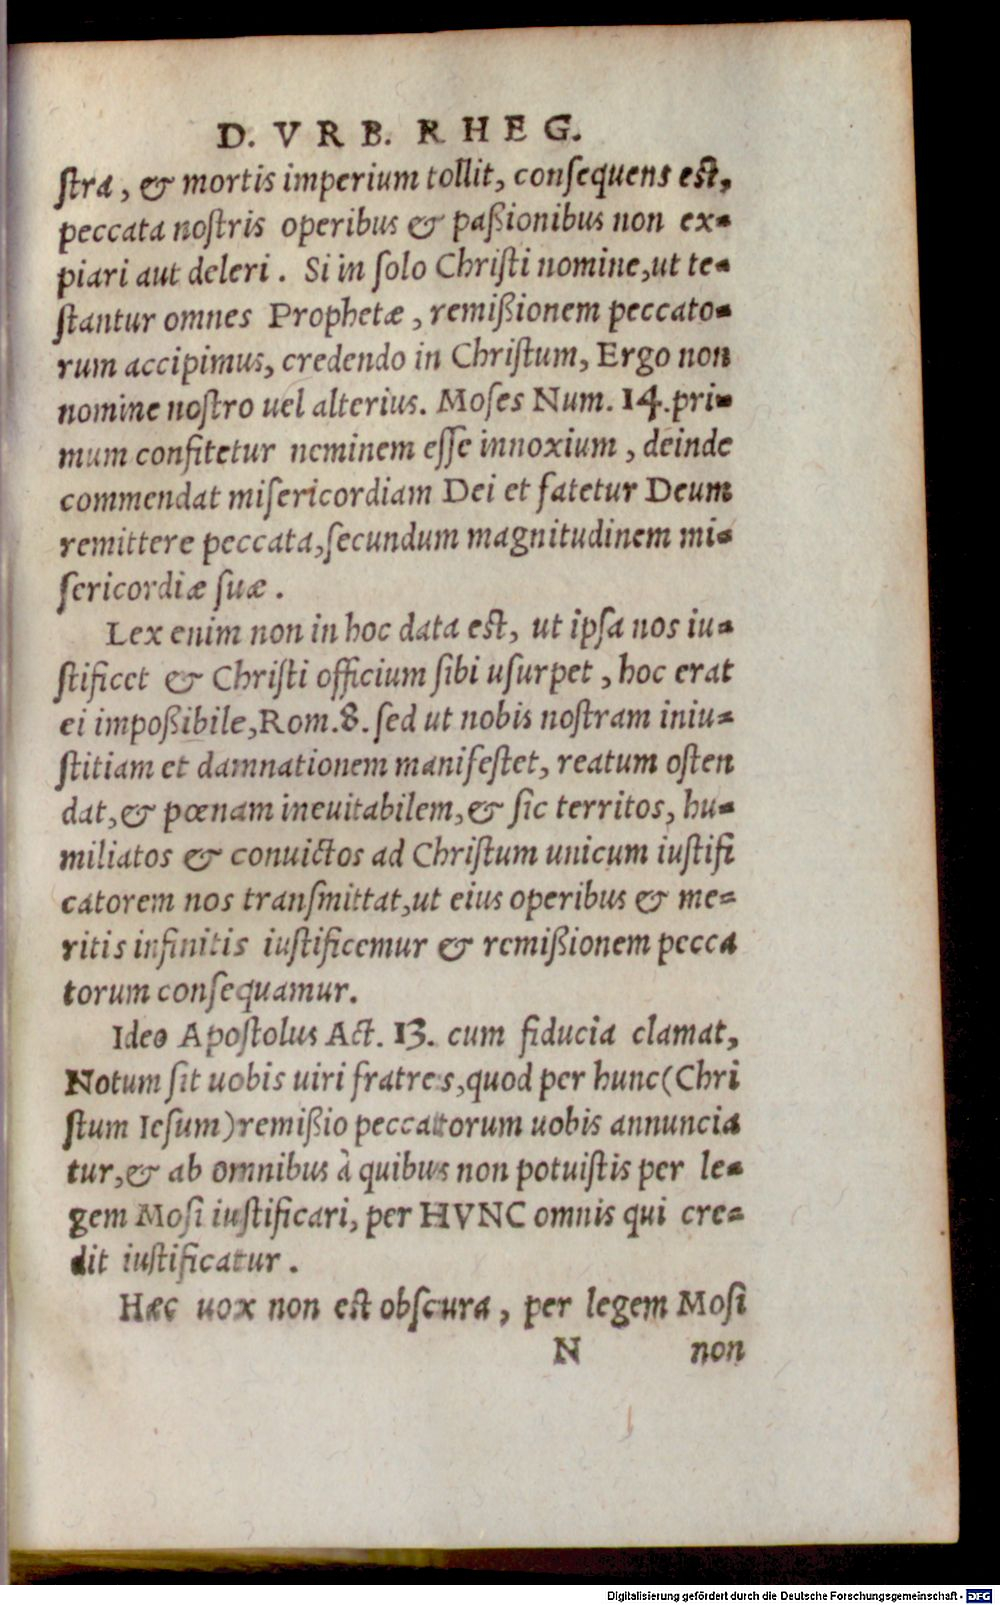 D. VRB. RHEG.
ſtra, & mortis imperium tollit, conſequens eſt,
peccata noſtris operibus & paßionibus non ex-
piari aut deleri. Si in ſolo Chriſti nomine, ut te-
ſtantur omnes Prophetæ, remißionem peccato-
rum accipimus, credendo in Chriſtum, Ergo non
nomine noſtro uel alterius. Moſes Num. 14. pri-
mum confitetur neminem eſſe innoxium, deinde
commendat miſericordiam Dei et fatetur Deum
remittere peccata, ſecundum magnitudinem mi-
ſericordiæ ſuæ.
Lex enim non in hoc data eſt, ut ipſa nos iu-
ſtificet & Chriſti officium ſibi uſurpet, hoc erat
ei impoßibile, Rom. 8. ſed ut nobis noſtram iniu-
ſtitiam et damnationem manifeſtet, reatum oſten
dat, & pœnam ineuitabilem, & ſic territos, hu-
miliatos & conuictos ad Chriſtum unicum iuſtifi
catorem nos tranſmittat, ut eius operibus & me-
ritis infinitis iuſtificemur & remißionem pecca
torum conſequamur.
Ideo Apoſtolus Act. 13. cum fiducia clamat,
Notum ſit uobis uiri fratres, quod per hunc (Chri
ſtum Ieſum) remißio peccatorum uobis annuncia
tur, & ab omnibus à quibus non potuiſtis per le-
gem Moſi iuſtificari, per HVNC omnis qui cre-
dit iuſtificatur.
Hæc uox non eſt obſcura, per legem Moſi
N non
Digitalisierung gefördert durch die Deutsche Forschungsgemeinschaft - DFG